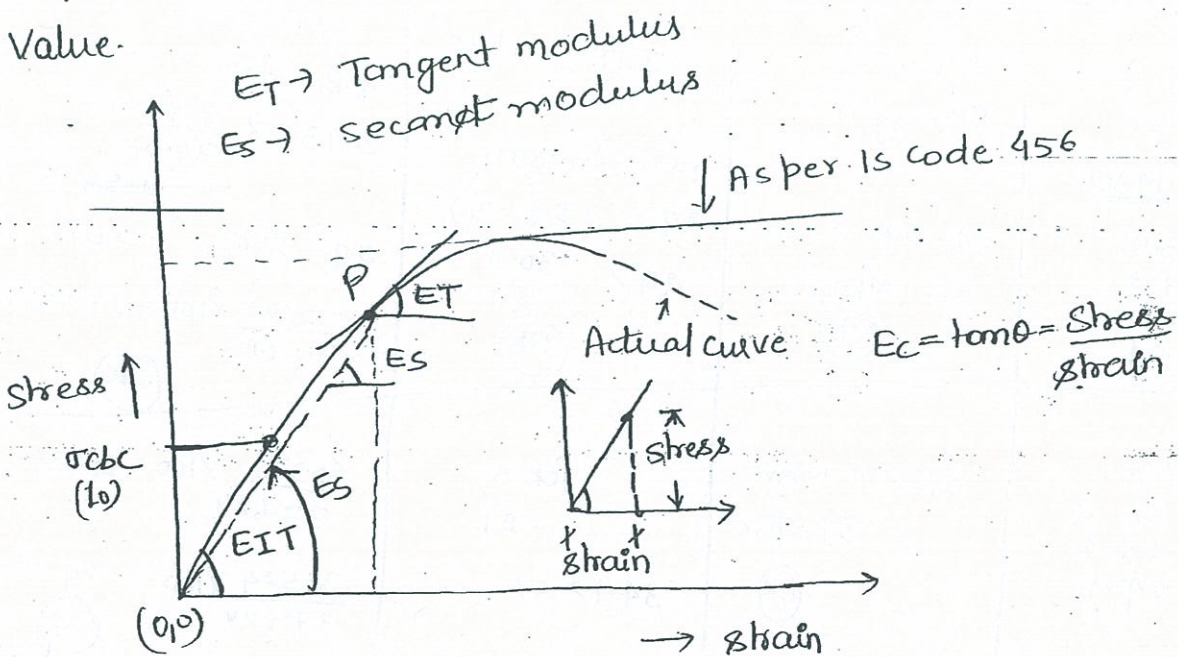 Value.
ET → Tangent modulus
Es → secant modulus
As per IS code 456
P
ET
Actual curve
Ec = tanθ = Stress
strain
Es
stress ↑
σcbc
(10)
Es
EIT
stress
strain
(0,0)
→ strain